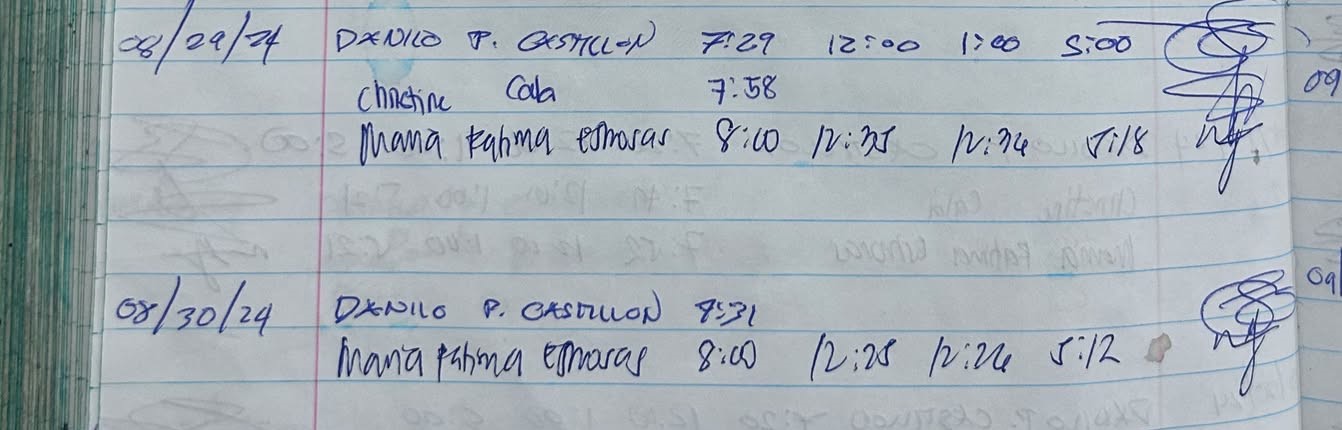 08/29/24 DANILO P. CASTILLON 7:29 12:00 1:00 5:00
Christine Cala 7:58
Maria Fahma 8:00 12:35 12:36 5:18
09
08/30/24 DANILO P. CASTILLON 7:31
09
Maria Fahma 8:00 12:25 12:26 5:12